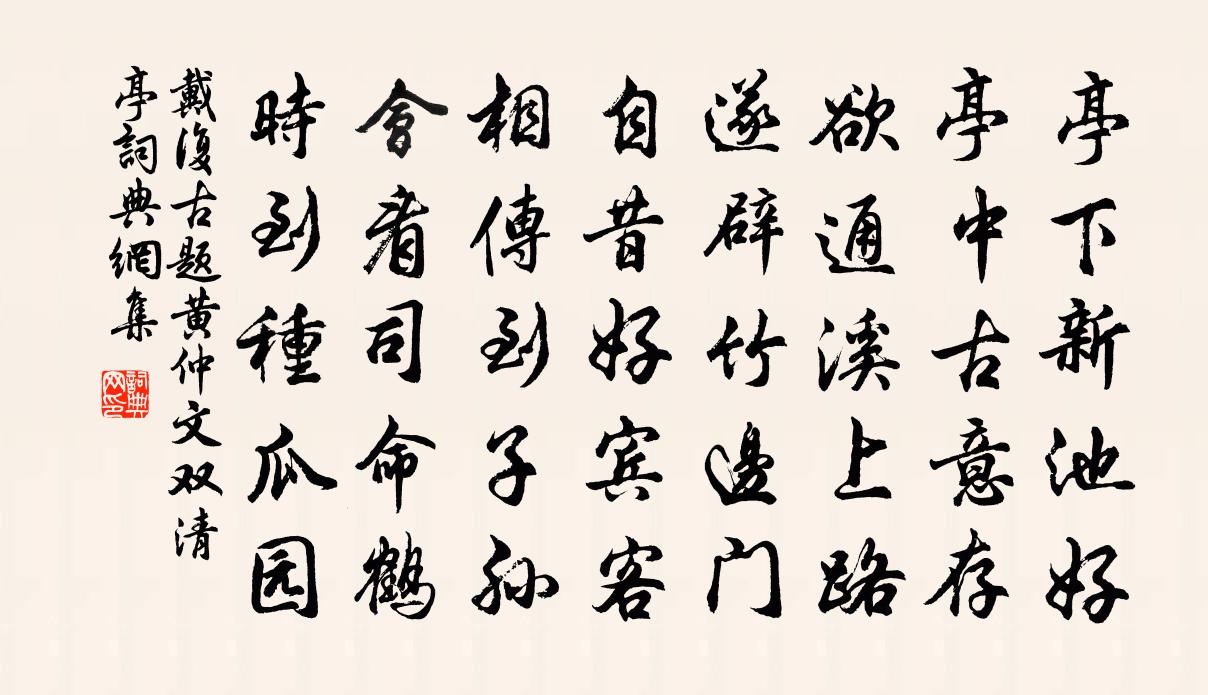 亭下新池好
亭中古意存
欲通溪上路
遂辟竹邊门
自昔好宾客
相傳到子孙
會看司命鶴
時到種瓜园
戴復古题黄仲文双清
亭詞典網集
詞典
网印